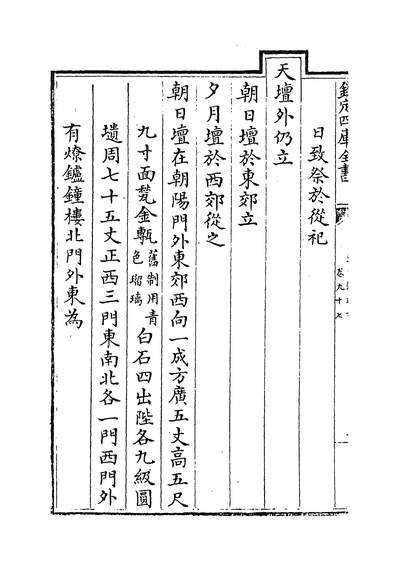 欽定四庫全書
卷九十七
日致祭於從祀
天壇外仍立
朝日壇於東郊立
夕月壇於西郊從之
朝日壇在朝陽門外東郊西向一成方廣五丈高五尺
九寸面甃金甎舊制用青色瑠璃白石四出陛各九級圓
壝周七十五丈正西三門東南北各一門西門外
有燎鑪鐘樓北門外東為